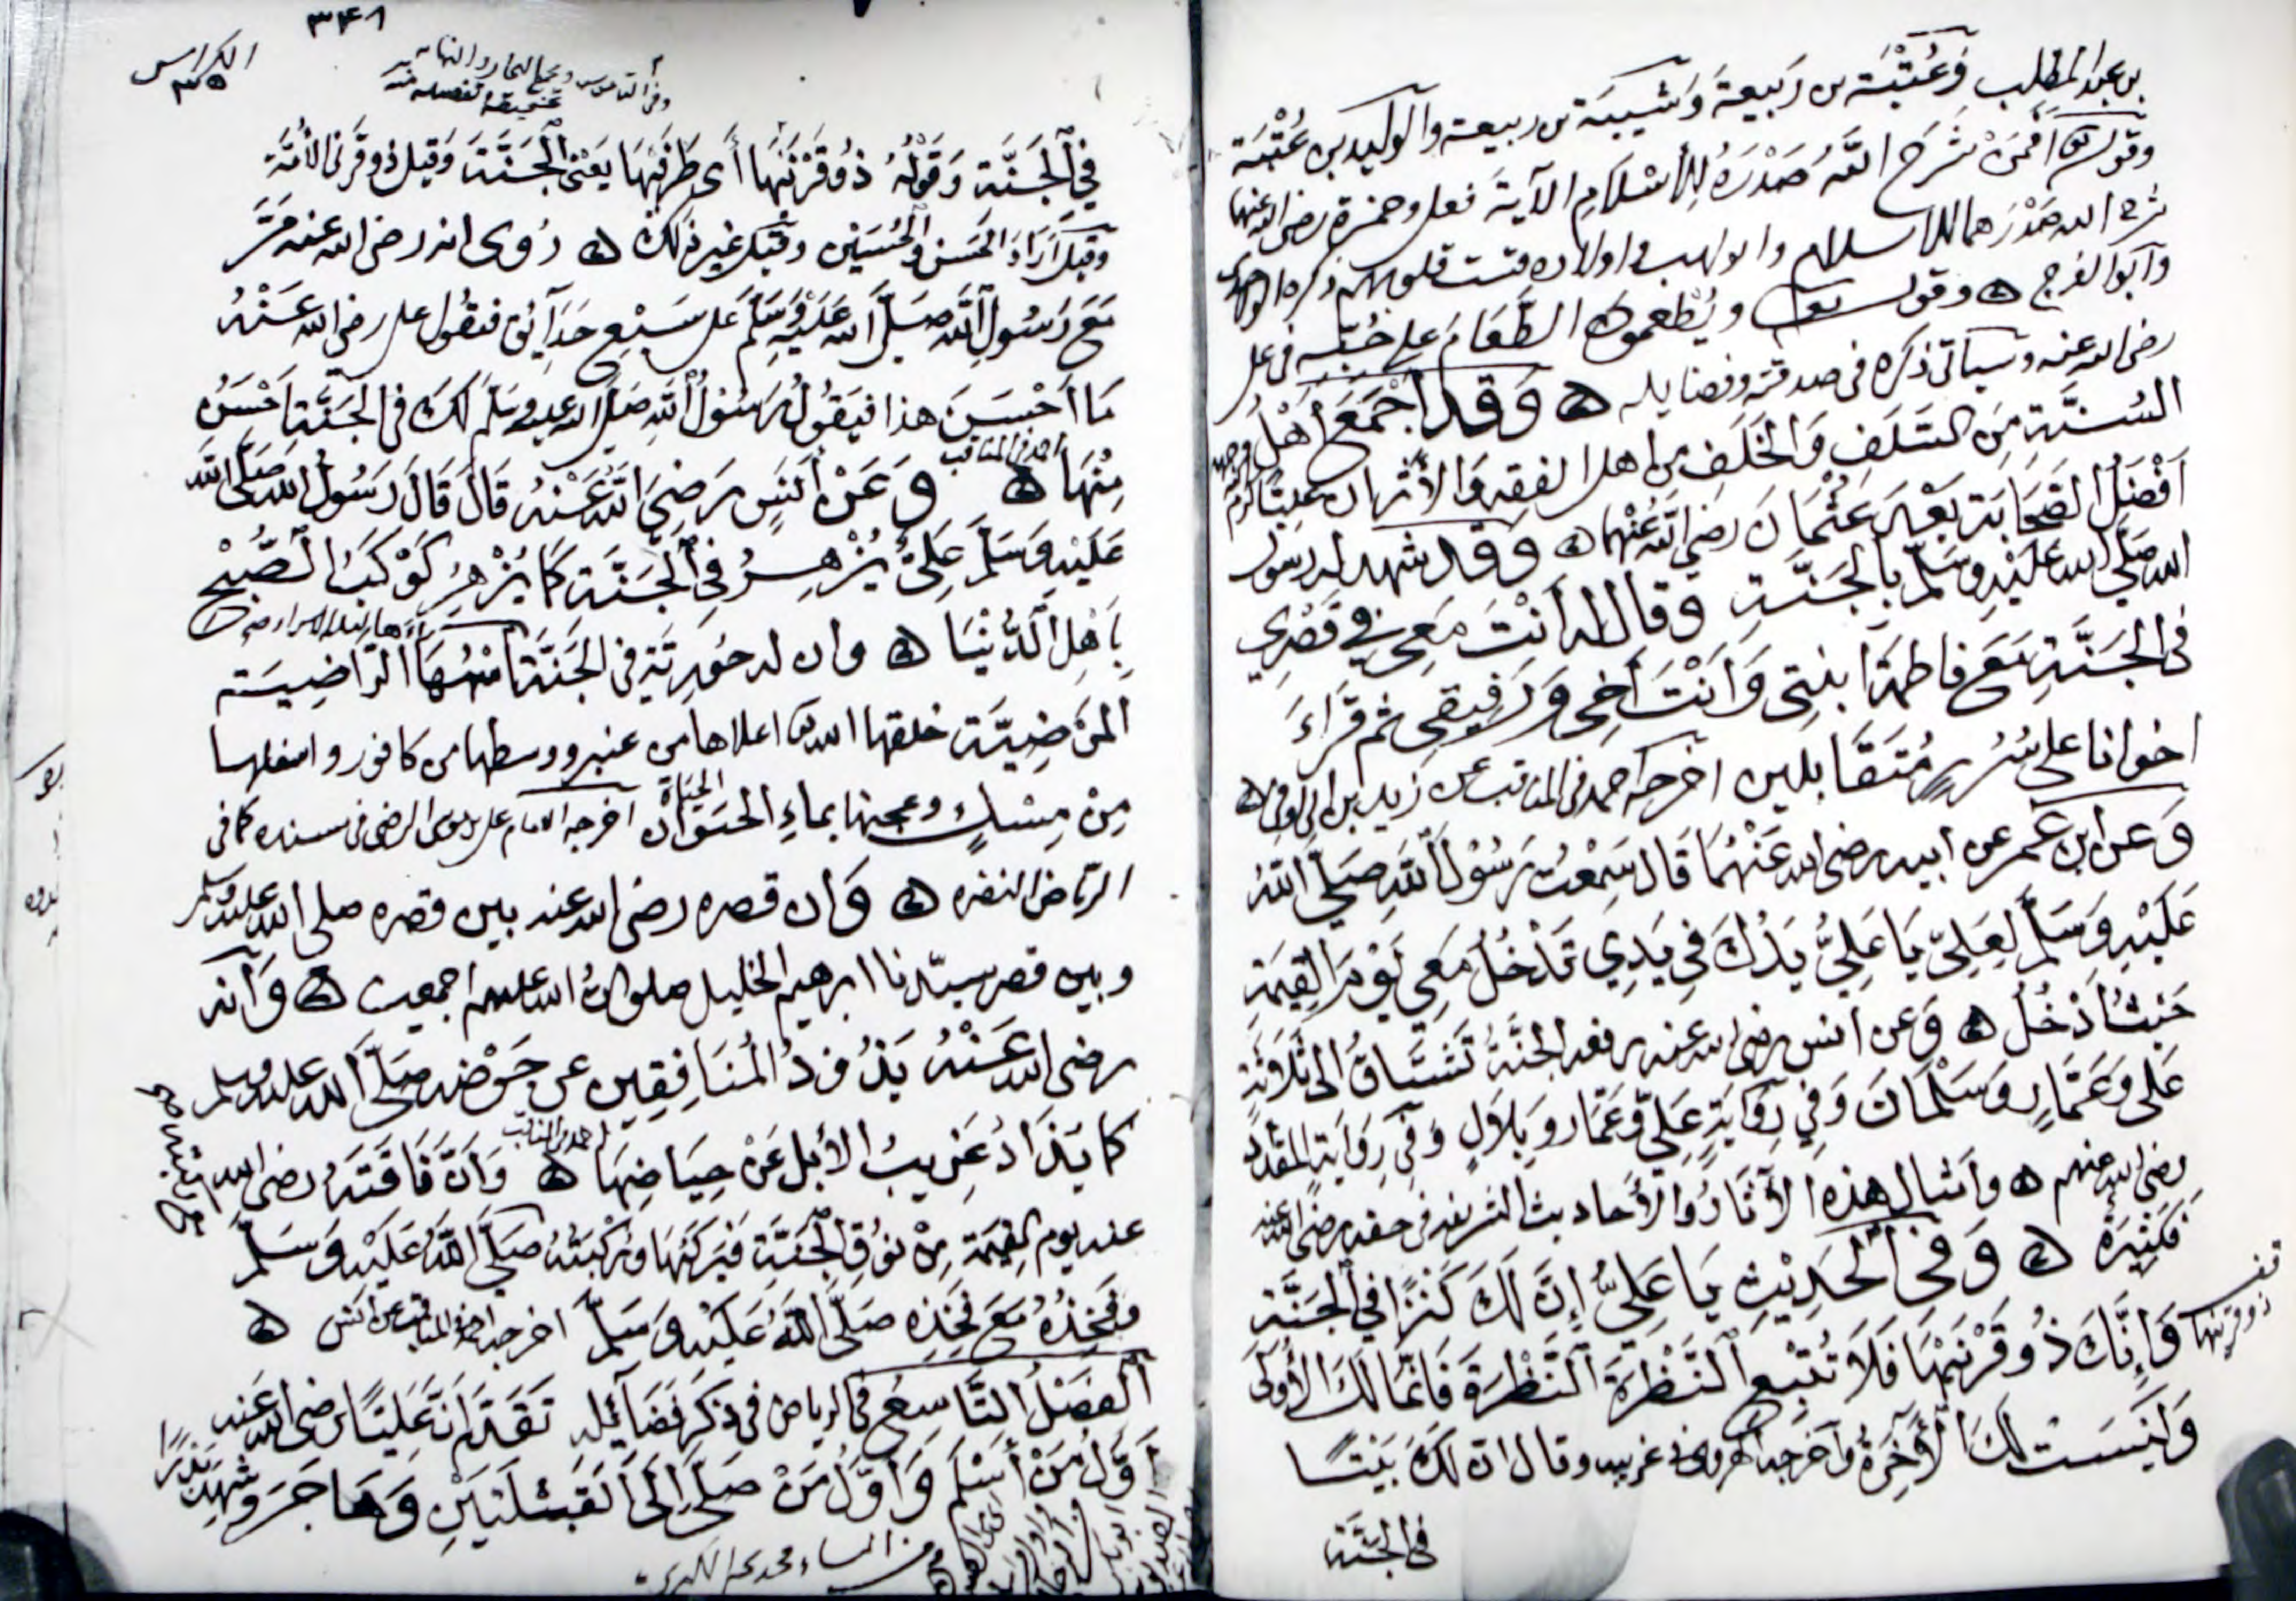 بن عبد المطلب وَعُتْبَة بن رَبيعة وَشَيبَة بن ربيعة والوليد بن عُتْبَة
وقوله تعالى اَفَمَنْ شَرَحَ اللَّهُ صَدْرَهُ لِلْاِسْلَامِ الآية فعلي وحمزة رضي الله عنهما
شرح الله صَدْرَهما للاسلام وابو لهب واولاده قست قلوبهم ذكره الواحدي
وَأبو الفرج ۞ وقوله تعالى ويُطْعِمُونَ الطَّعَامَ على حُبِّه في علي
رضي الله عنه وسياتي ذكره في صدقته وفضايله ۞ وَقد اَجْمَعَ اَهْلُ
السُنَّةِ مِنَ السَّلَفِ وَالخَلَف من اهل الفقه وَالأثر ان عَلِيًّا كرم الله وجهه
اَفْضَلُ الصَّحَابَة بَعْدَ عُثْمَانَ رضي الله عَنْهما ۞ وَقد شهد له رسول
الله صلَّى الله عَلَيْهِ وسَلَّم بِالجَنَّةِ وقال له اَنْتَ مَعِي في قَصْرِي
في الجَنَّةِ مَعَ فاطمة ابنتي وَاَنْتَ اَخِي وَرَفِيقي ثم قَرَاءَ
اخوانا على سُرُرٍ مُتَقَابلين اخرجه احمد في المناقب عن زيد بن ابي اوفى ۞
وَعن ابن عُمر عن ابيه رضي الله عَنْهُمَا قَال سَمِعْتُ رَسُولَ اللَّه صَلَّى اللّهُ
عَلَيْهِ وَسَلَّم لِعَلِيّ يَا عَلِيُّ يَدُكَ في يَدِي تَدْخُلُ مَعِي يَوْمَ القِيمَة
حَيْثُ اَدْخُلُ ۞ وَعن انس رضي الله عنه رفعه الجنَّةُ تَشْتَاقُ الى ثَلَاثَةٍ
عَلي وَعَمَّارٍ وَسَلْمَانَ وَفي رِوَايَةٍ عَلِيّ وَعَمَّار وَبِلَالٍ وَفي رِوَايَة المقداد
رضي الله عنهم ۞ وامثال هذه الأثَارُ وَالأحاديث الشريفه في حقه رضي الله عنه
فكثِيرَة ۞ وَفي الحَدِيْثِ يَا عَلِيُّ اِنَّ لَكَ كَنْزًا في الجَنَّة
وَاِنَّكَ ذُو قَرْنَيْهَا فَلَا تُتْبِعِ النَّظْرَةَ النَّظْرَةَ فَاِنَّمَا لَكَ الأُولَى
ذو قرنيها
وَلَيْسَتْ لَكَ الأَخِرَةُ وَاَخرجه الهروي في غريبه وقال ان لَكَ بَيْتًا
في الجَنَّة
٣٤٨
الكراس
٣٥
وفي القاموس ومجمع البحار والنهايه
في الجَنَّة وَقَوْلُهُ ذُو قَرْنَيْهَا أَي طَرَفَيْهَا يَعْني الجَنَّةَ وَقيل ذو قَرْني الأُمَّة
وقيل اَرَادَ الحَسَن وَالحُسَيْن وقيل غير ذلك ۞ رُوى انه رضي الله عنه مَرَّ
مَعَ رَسُولِ اللَّهِ صَلَّى اللّه عَلَيْهِ وَسَلَّم على سَبْعِ حَدَائِق فيقُول علي رضي الله عَنْهُ
مَا اَحْسَنَ هذا فيَقُولُ رَسُولُ اللَّهِ صَلَّى الله عليه وسلم لَكَ في الجَنَّةِ اَحْسَنُ
مِنْهَا ۞ احمد في المناقب وَعَنْ اَنَسٍ رَضِيَ اللّه عَنْهُ قَالَ قَالَ رَسُولُ اللَّهِ صَلَّى اللّه
عَلَيْهِ وَسَلَّمَ عَلِيٌّ يُزْهِرُ في الجَنَّة كَمَا يُزْهِرُ كَوْكَبُ الصُّبْحِ
بِاَهْلِ الدُّنْيَا ۞ وان له حُوريَّة في الجَنَّةِ اسْمُهَا الرَّاضِيَة
المَرْضِيَّة خلقها الله تعالى اعلاها من عنبر ووسطها من كافور واسفلها
مِنْ مِسْكٍ وعجنها بماءِ الحَيَوَان الحياة اخرجه الامام علي بن موسى الرضي في مسنده كما في
الرياض النضره ۞ وَان قصره رضي الله عنه بين قصره صلى الله عليه وسلم
وبين قصر سيّدنا ابرهيم الخليل صلوات الله عليهم اجمعين ۞ وَانه
رضي الله عَنْهُ يَذُودُ المُنَافِقِين عن حَوْضِه صَلَّى الله عليه وسلم
كما يَذَادُ غَرِيبُ الأبل عَنْ حِيَاضِهَا ۞ احمد في المناقب وَانَّ نَاقَتَهُ رضي الله
عنه يوم القيمة مِنْ نُوقِ الجَنَّةِ فَيَرْكَبُهَا وَرُكْبَتُهُ صَلَّى اللَّهُ عَلَيْهِ وَسَلَّمَ
وفَخِذُهُ مَعَ فَخِذِه صَلَّى اللَّهُ عَلَيْهِ وَسَلَّم اخرجه احمد في المناقب عن انس ۞
اَلْفَصْلُ التَّاسِعُ في الرياض في ذكر فَضَائِله تَقَدَّمَ اَنَّ عَلِيًّا رضي الله عَنه
اَوَّلُ مَنْ اَسْلَمَ وَاَوَّلُ مَنْ صَلَّى اِلَى القِبْلَتَيْنِ وَهَاجَرَ وشهد بَدْرًا